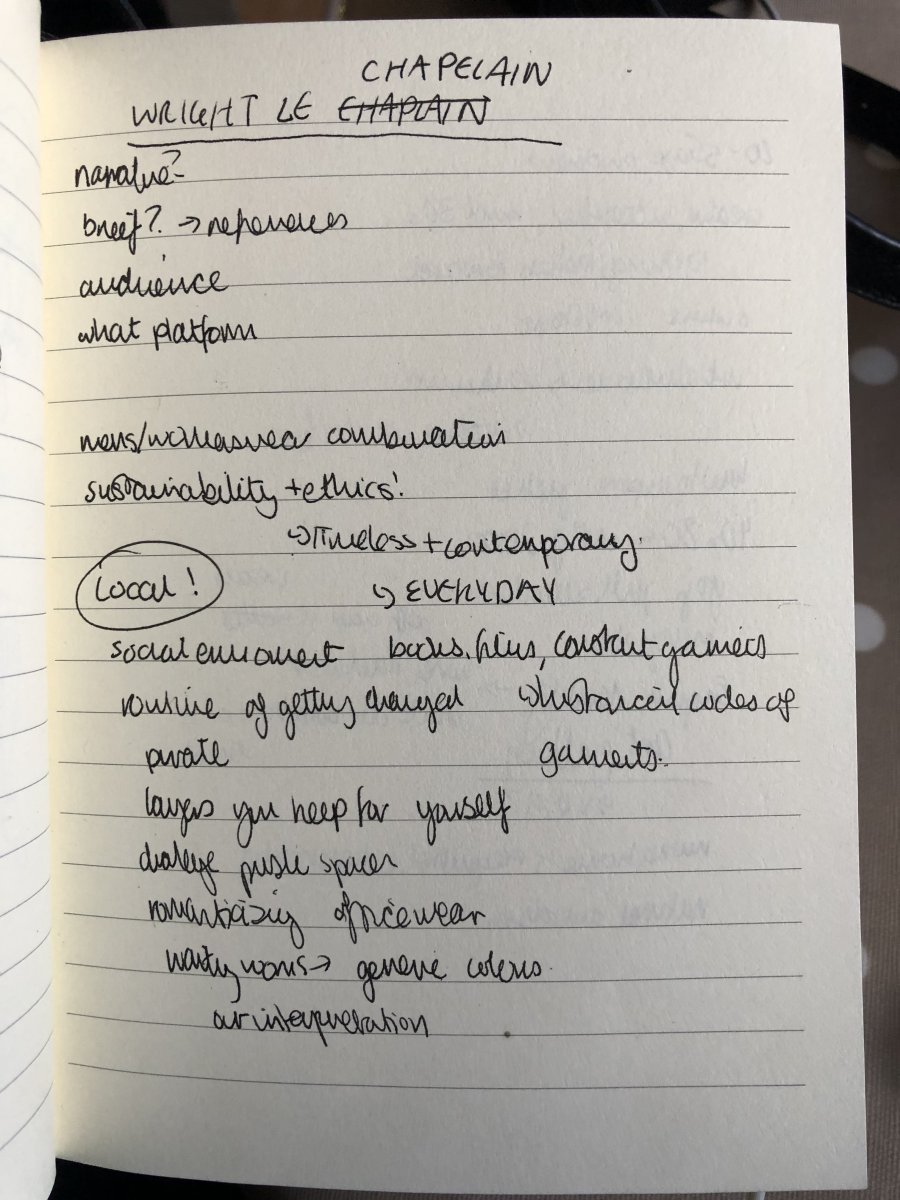 CHAPELAIN
WRIGHT LE CHAPLAIN
narrative?
brief? → references
audience
what platform
mens/womenswear combination
sustainability + ethics!
↳ timeless + contemporary.
Local!
↳ EVERYDAY
social enviroment books, films, constant garments
routine of getting changed ↳ historical codes of
private garments.
layers you keep for yourself
public spaces
romanticizing officewear
→ generic
our interpretation